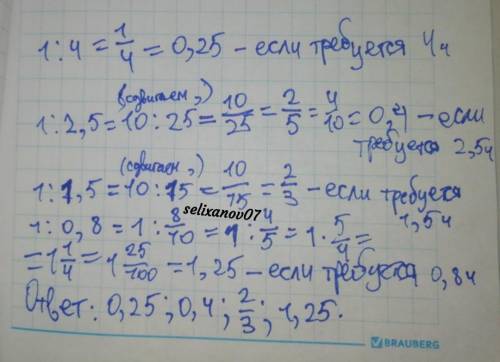 1:4 = 1/4 = 0,25 – если требуется 4ч
(сдвигаем ,)
1:2,5 = 10:25 = 10/25 = 2/5 = 4/10 = 0,4 – если
требуется 2,5ч
(сдвигаем ,)
1:1,5 = 10:15 = 10/15 = 2/3 – если требуется
1,5ч
selixanov07
1:0,8 = 1:8/10 = 1:4/5 = 1·5/4 =
= 1 1/4 = 1 25/100 = 1,25 – если требуется 0,8ч
Ответ: 0,25; 0,4; 2/3; 1,25.
BRAUBERG